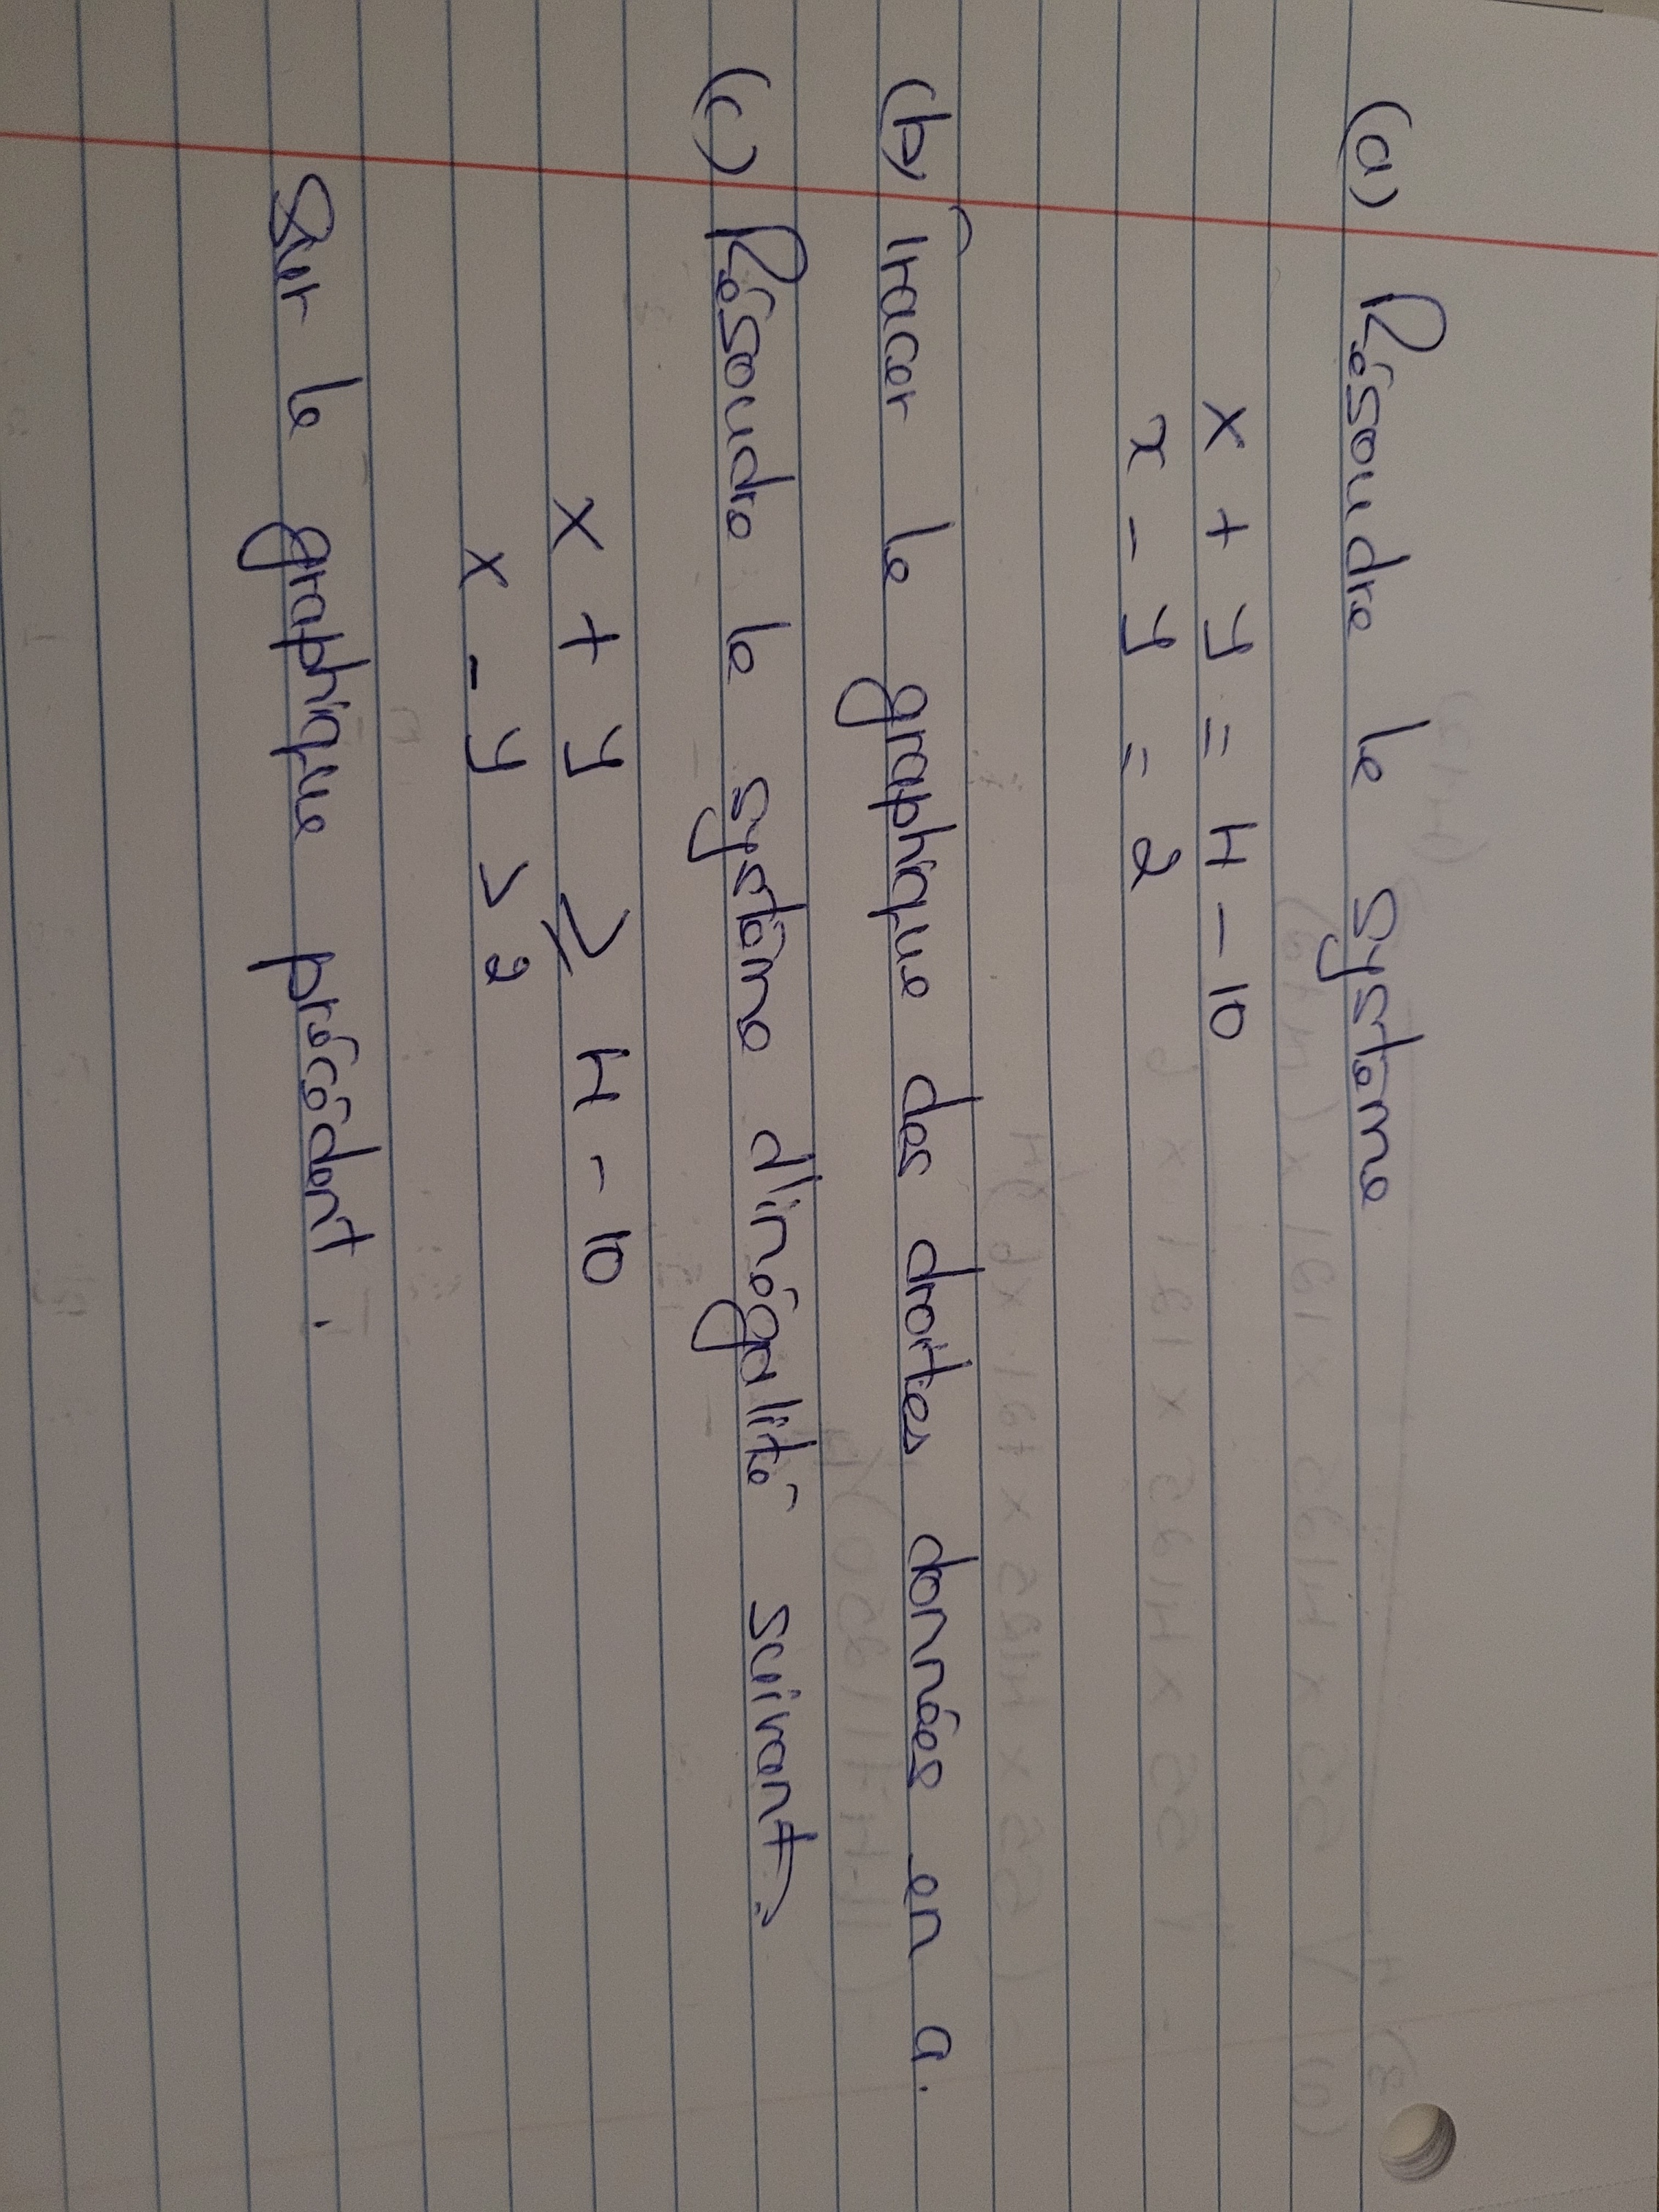 (a) Résoudre le système
x + y = 4 - 10
x - y = 2
(b) Tracer le graphique des droites données en a.
(c) Résoudre le système d'inégalité suivant
x + y ≥ 4 - 10
x - y > 2
Sur le graphique précédent.